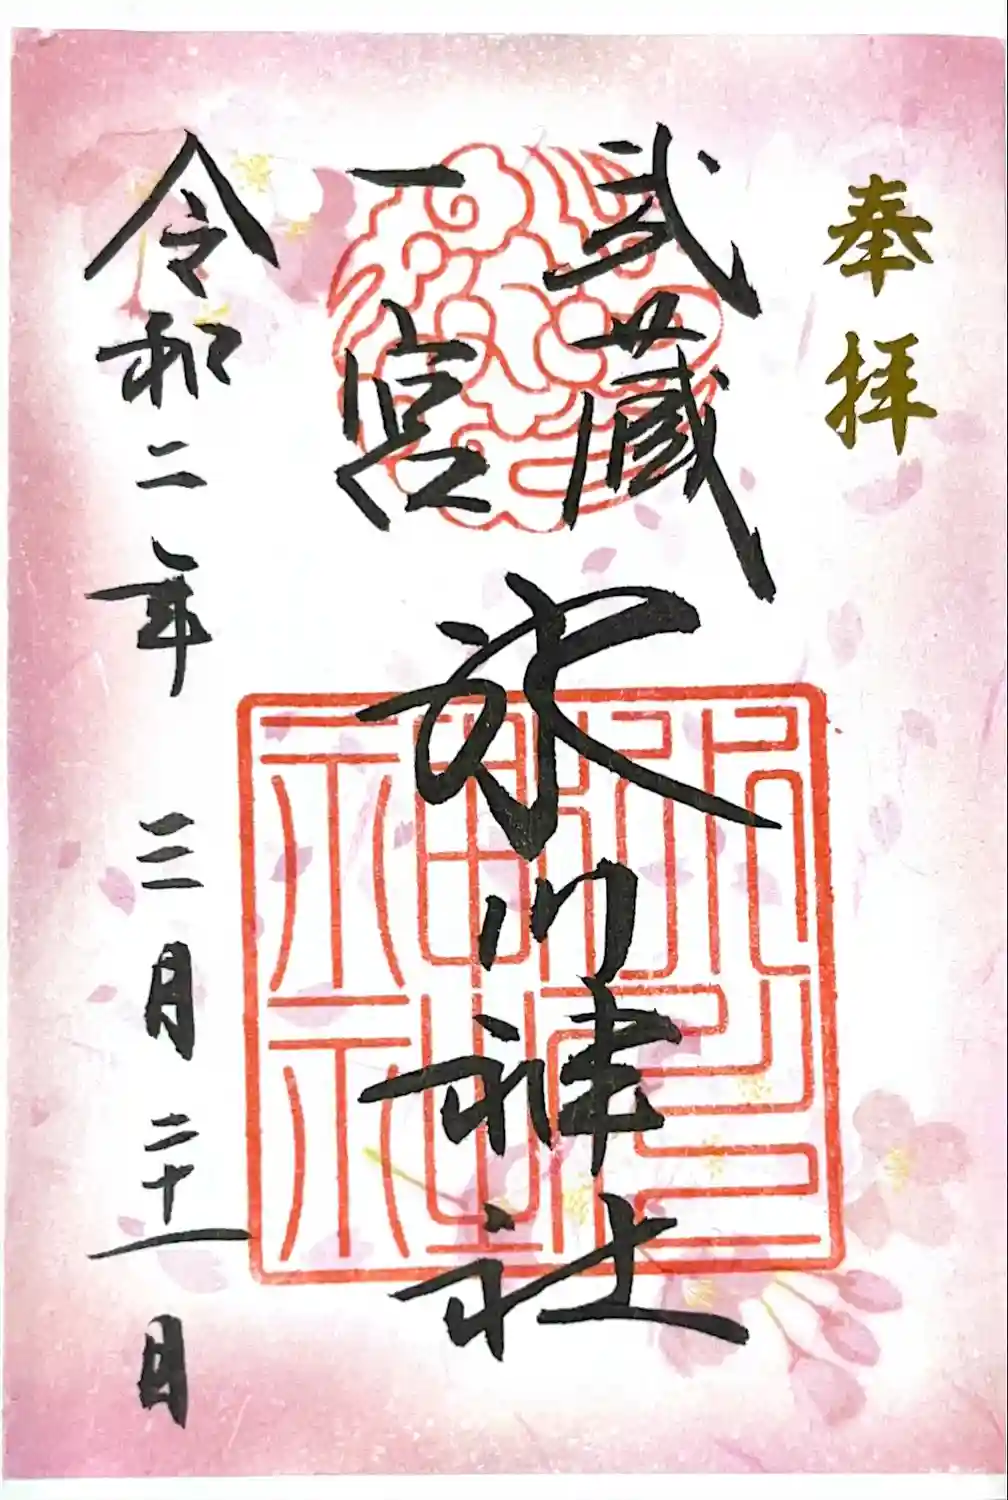 奉拝
武蔵
一宮
氷川神社
令和二年 三月二十一日